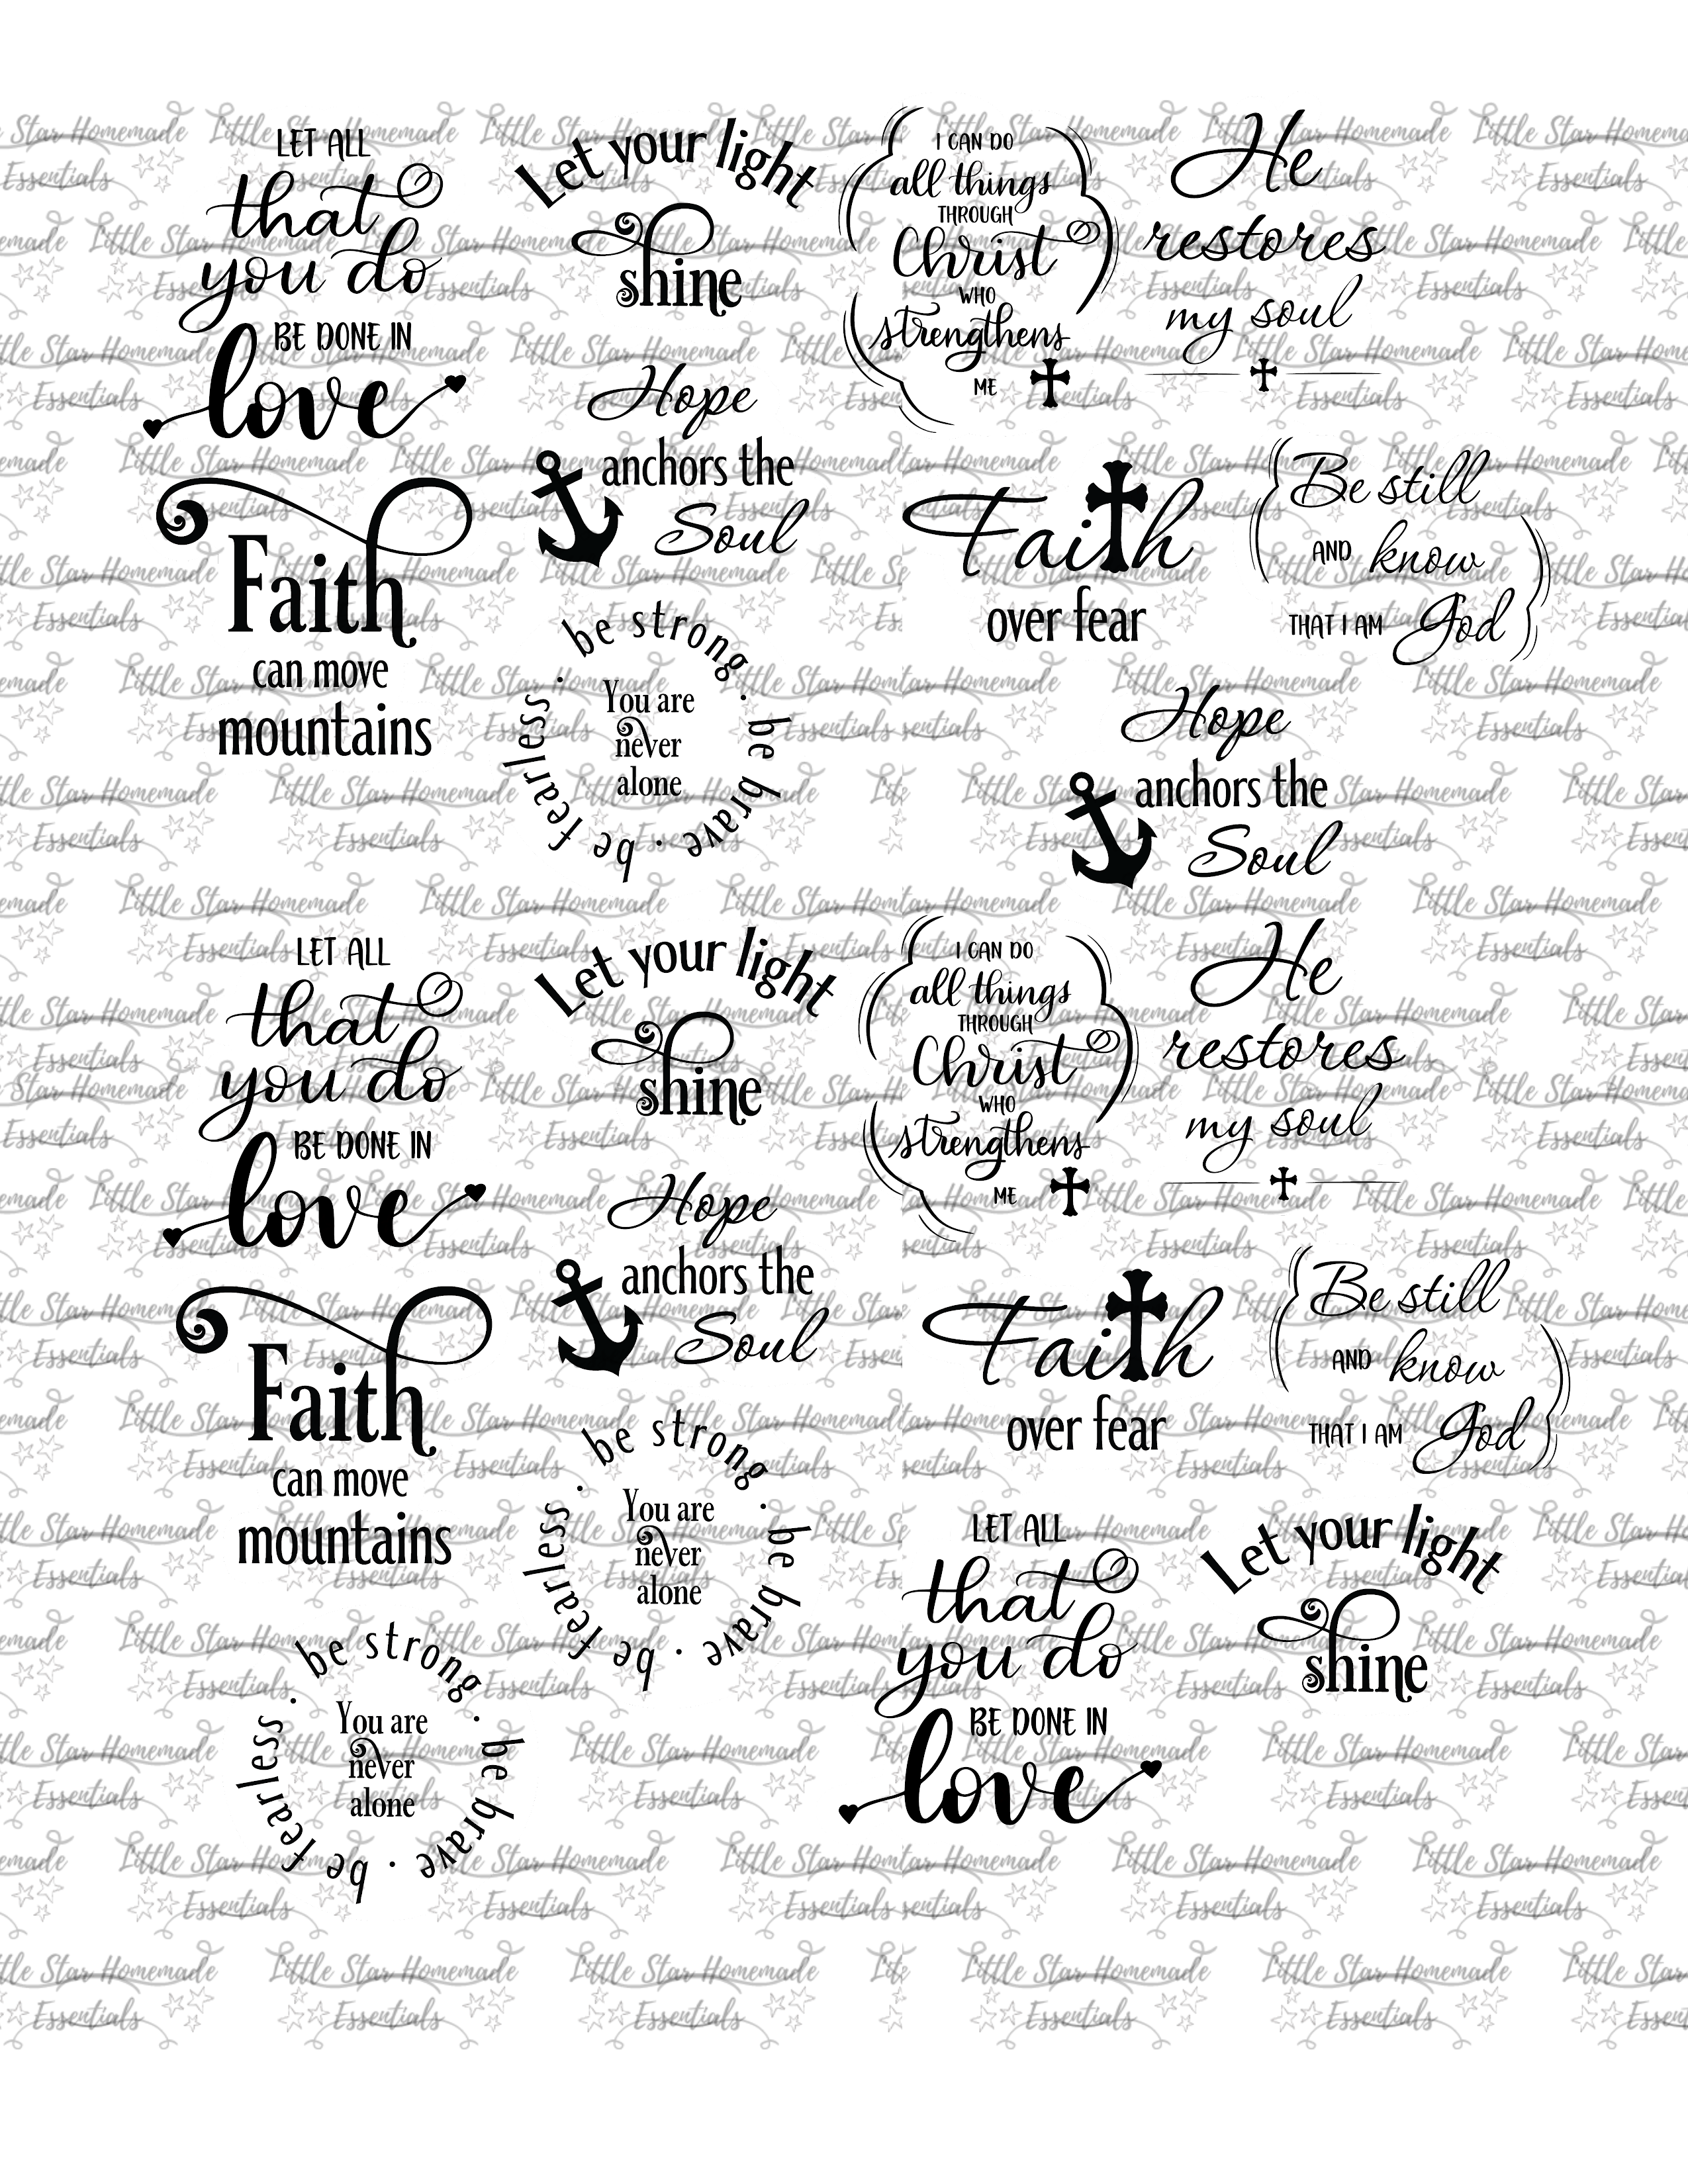 LET ALL
that
you do
BE DONE IN
love
Let your light
shine
I CAN DO
all things
THROUGH
Christ
WHO
strengthens
ME
He
restores
my soul
Faith
can move
mountains
Hope
anchors the
Soul
be strong . be brave . be fearless .
You are
never
alone
Faith
over fear
Be still
AND know
THAT I AM God
Hope
anchors the
Soul
LET ALL
that
you do
BE DONE IN
love
Let your light
shine
I CAN DO
all things
THROUGH
Christ
WHO
strengthens
ME
He
restores
my soul
Faith
can move
mountains
Hope
anchors the
Soul
be strong . be brave . be fearless .
You are
never
alone
Faith
over fear
Be still
AND know
THAT I AM God
be strong . be brave . be fearless .
You are
never
alone
LET ALL
that
you do
BE DONE IN
love
Let your light
shine
Little Star Homemade
Essentials